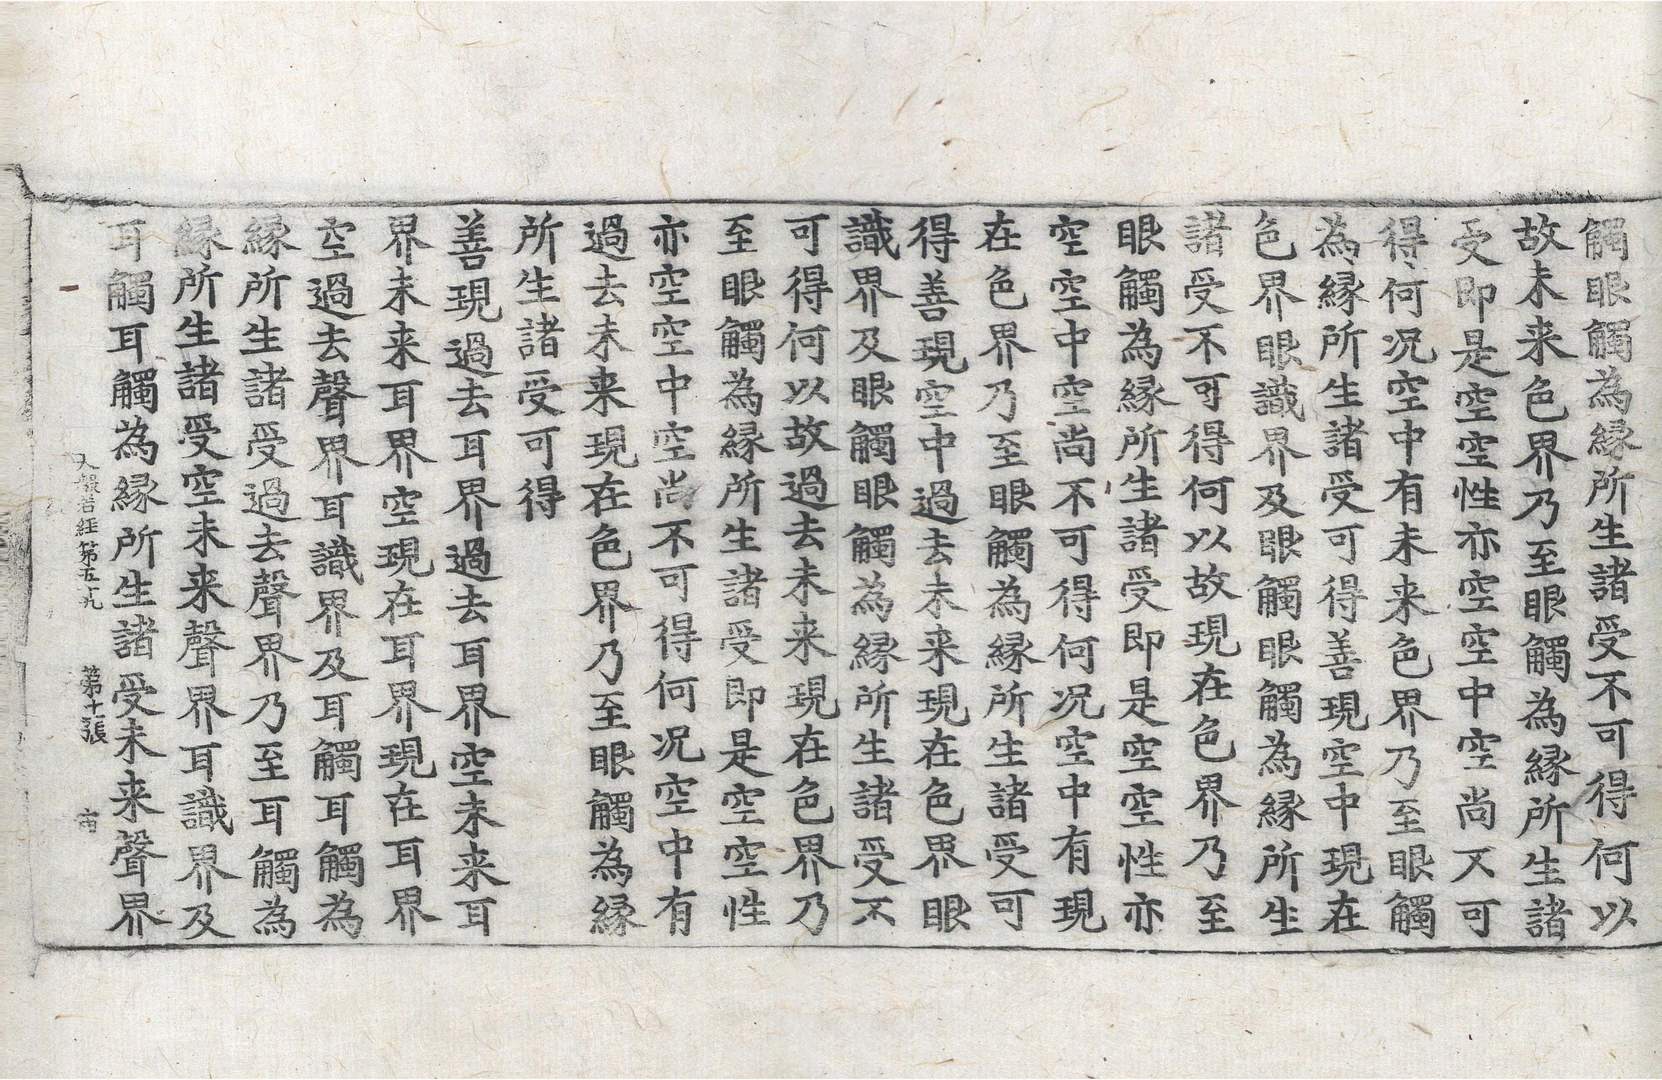 觸眼觸為縁所生諸受不可得何以
故未来色界乃至眼觸為縁所生諸
受即是空空性亦空空中空尚不可
得何况空中有未来色界乃至眼觸
為縁所生諸受可得善現空中現在
色界眼識界及眼觸眼觸為縁所生
諸受不可得何以故現在色界乃至
眼觸為縁所生諸受即是空空性亦
空空中空尚不可得何况空中有現
在色界乃至眼觸為縁所生諸受可
得善現空中過去未来現在色界眼
識界及眼觸眼觸為縁所生諸受不
可得何以故過去未来現在色界乃
至眼觸為縁所生諸受即是空空性
亦空空中空尚不可得何况空中有
過去未来現在色界乃至眼觸為縁
所生諸受可得
善現過去耳界過去耳界空未来耳
界未来耳界空現在耳界現在耳界
空過去聲界耳識界及耳觸耳觸為
縁所生諸受過去聲界乃至耳觸為
縁所生諸受空未来聲界耳識界及
耳觸耳觸為縁所生諸受未来聲界
大般若經第五十九 第十張